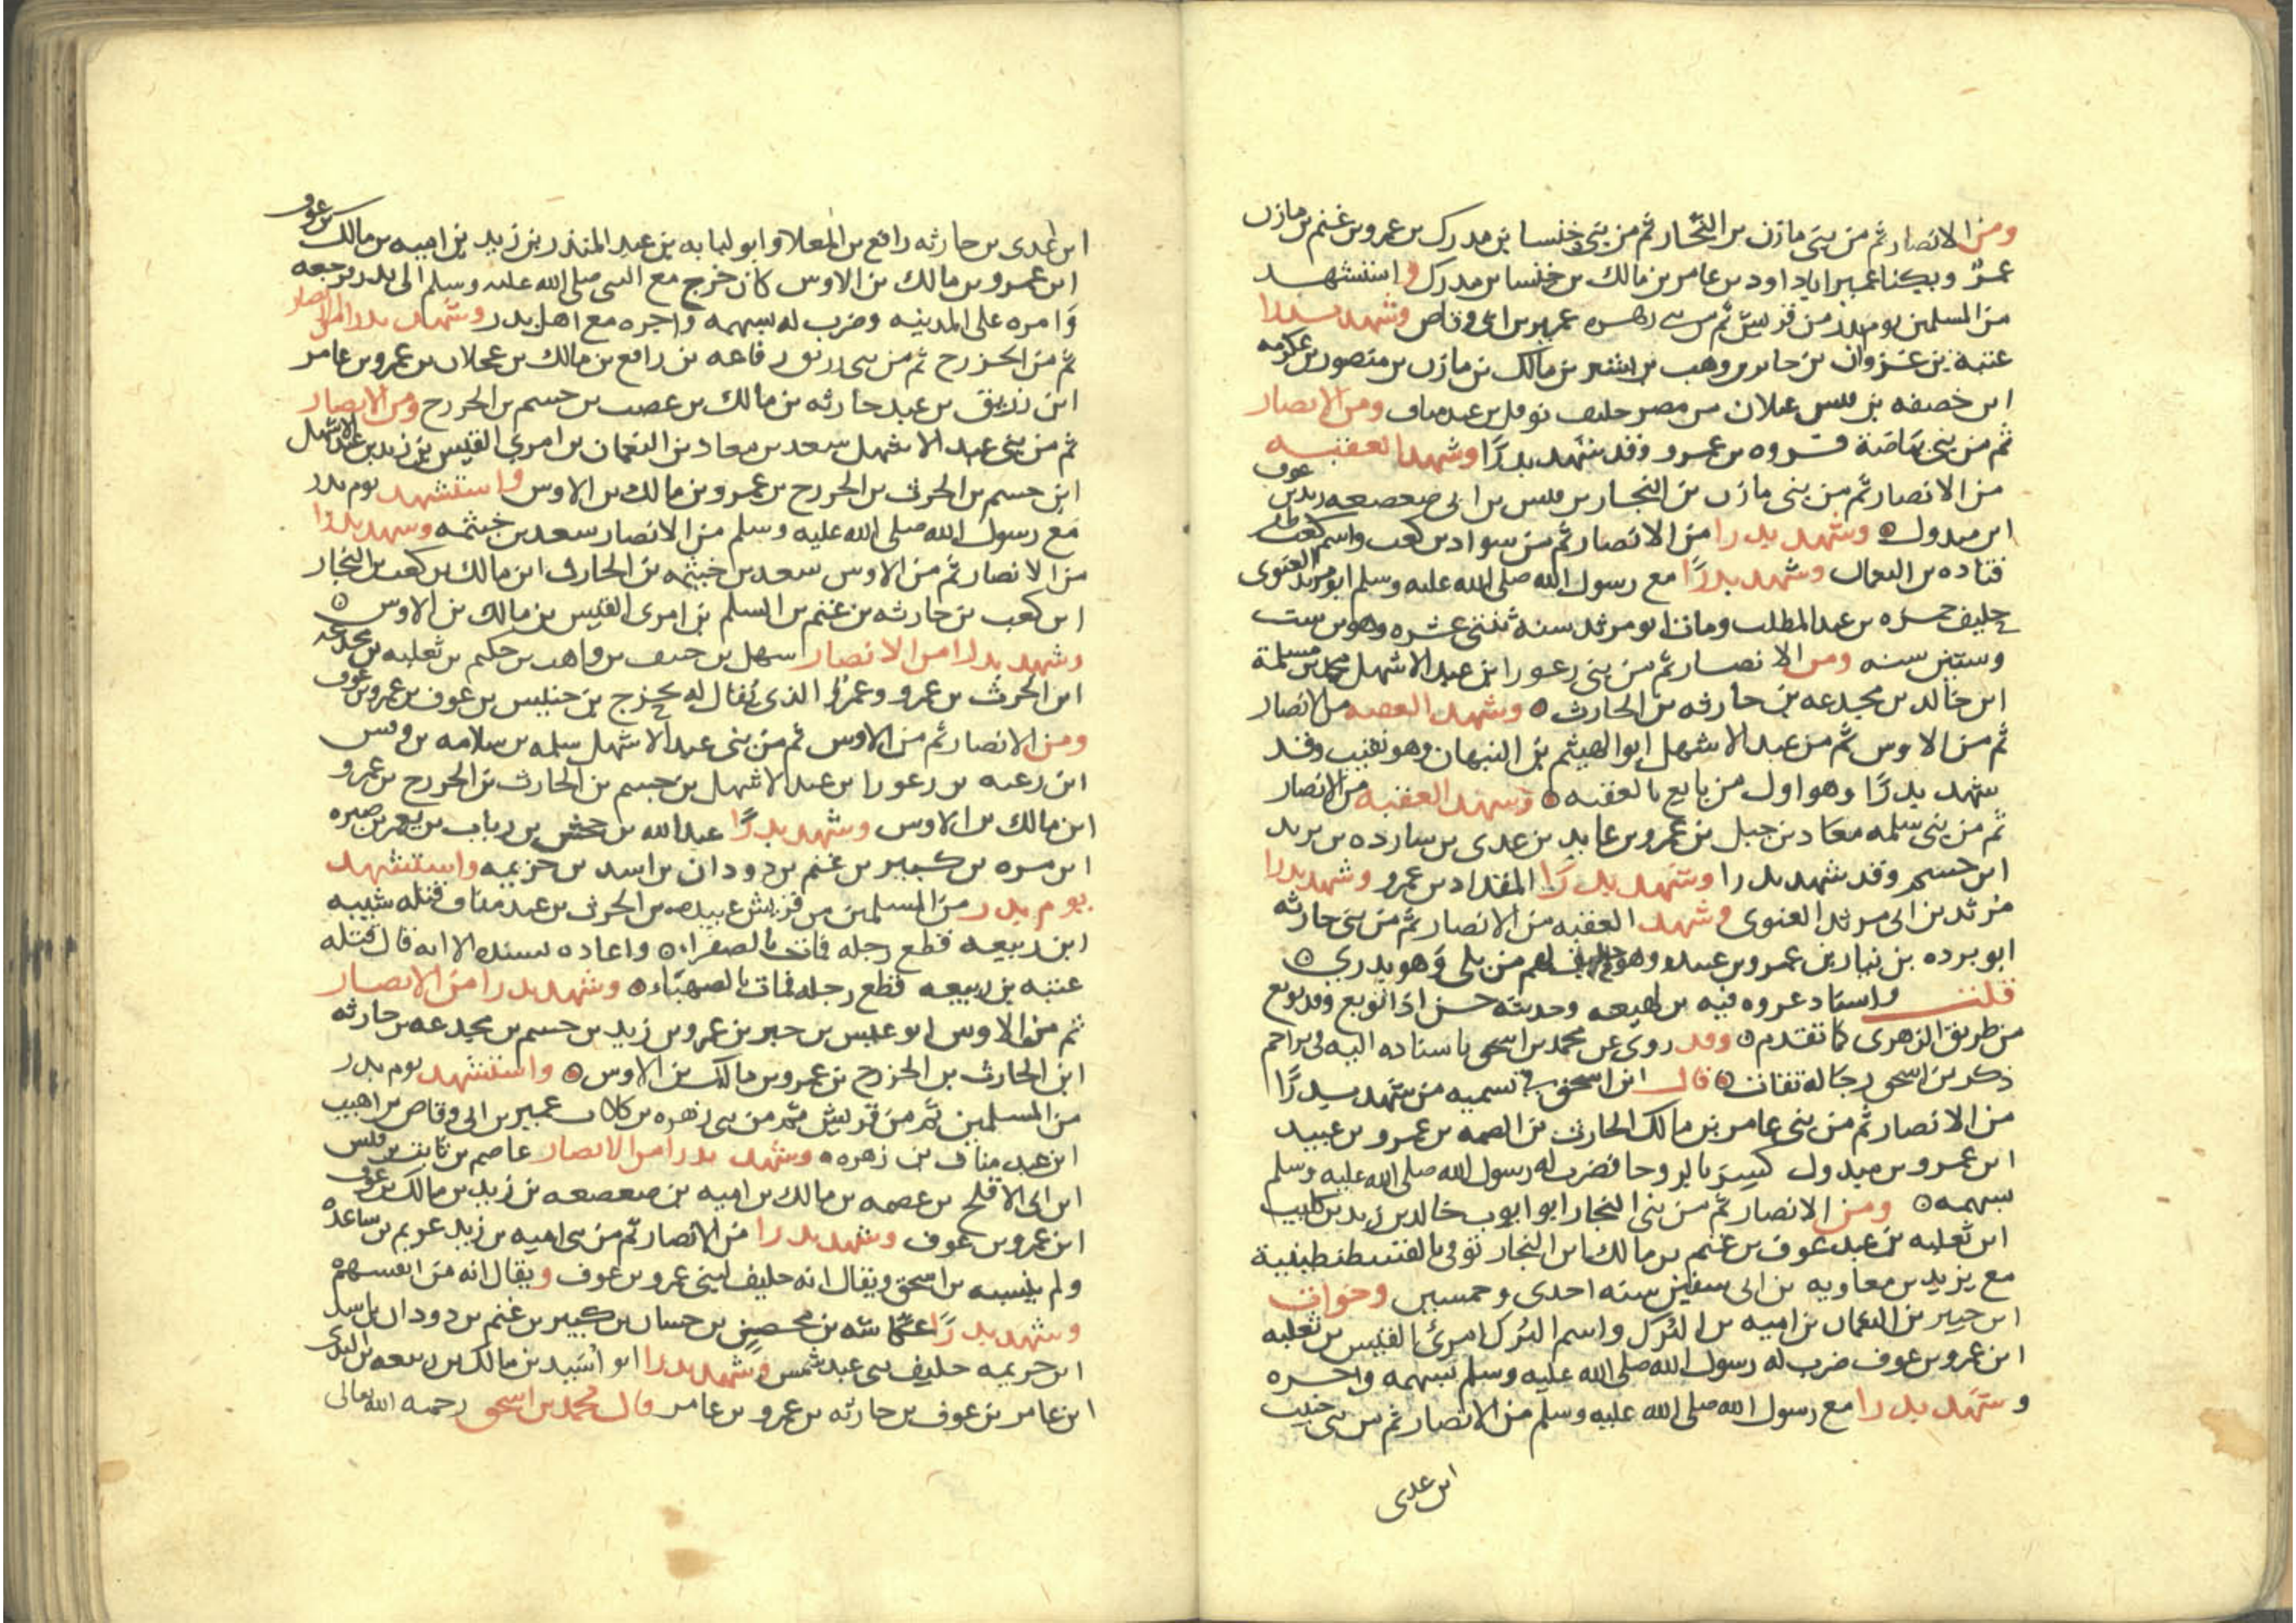 ومن الانصار ثم من بني مازن بن النجار ثم من بني خنسا بن مدرك بن عمرو بن غنم بن مازن
عمرو ويكنا عمير ابا داود بن عامر بن مالك بن خنسا بن مدرك واستشهد
من المسلمين يوميذ من قريش ثم من بني زهره عمير بن ابي وقاص وشهد بدرا
عتبة بن غزوان بن جابر بن وهب بن نشر بن مالك بن مازن بن منصور بن عكرمه
ابن خصفه بن قيس عيلان من مضر حليف نوفل بن عبد مناف ومن الانصار
ثم من بني بياضة فروه بن عمرو وقد شهد بدرًا وشهد العقبه
من الانصار ثم من بني مازن بن النجار بن قيس بن ابي صعصعه زيد بن عوف
ابن مبدول ٥ وشهد بدرا من الانصار ثم من سواد بن كعب واسم كعب ظفر
قتاده بن النعمان وشهد بدرًا مع رسول الله صلى الله عليه وسلم ابو مرثد الغنوي
حليف حمزه بن عبد المطلب ومات ابو مرثد سنه ثنتي عشره وهو بن ست
وستين سنه ومن الانصار ثم من بني زعورا بن عبد الاشهل محمد بن مسلمة
ابن خالد بن مجدعه بن حارثه بن الحارث ٥ وشهد العقبه من الانصار
ثم من الاوس ثم من عبد الاشهل ابو الهيثم بن التيهان وهو نقيب وقد
شهد بدرًا وهو اول من بايع بالعقبه ٥ وشهد العقبه من الانصار
ثم من بني سلمه معاد بن جبل بن عمرو بن عايد بن عدي بن سارده بن يزيد
ابن جسم وقد شهد بدرا وشهد بدرًا المقداد بن عمرو وشهد بدرا
مرثد بن ابي مرثد الغنوي وشهد العقبه من الانصار ثم من بني حارثه
ابو برده بن نيار بن عمرو بن عبيد وهو حليف لهم من بلي وهو بدري ٥
قلت واسناد عروه فيه بن لهيعه وحديثه حسن اذا توبع وقد توبع
من طريق الزهري كما تقدم ٥ وقد روي عن محمد بن اسحق باسناده اليه
ذكر بن اسحق رجاله ثقات ٥ قال ابن اسحق في تسميه من شهد بدرًا
من الانصار ثم من بني عامر بن مالك الحارث بن الصمه بن عمرو بن عبيد
ابن عمرو بن مبدول كسر بالروحا فضرب له رسول الله صلى الله عليه وسلم
بسهمه ٥ ومن الانصار ثم من بني النجار ابو ايوب خالد بن زيد بن كليب
ابن ثعلبه بن عبد عوف بن غنم بن مالك بن النجار توفي بالقسطنطينية
مع يزيد بن معاويه بن ابي سفين سنه احدى وخمسين وخوات
ابن جبير بن النعمان بن اميه بن البُرَك واسم البُرَك امرئ القيس بن ثعلبه
ابن عمرو بن عوف ضرب له رسول الله صلى الله عليه وسلم بسهمه واجره
وشهد بدرا مع رسول الله صلى الله عليه وسلم من الانصار ثم من بني حبيب
ابن عدي
ابن عدي بن حارثه رافع بن المعلا وابو لبابه بن عبد المنذر بن زيد بن اميه بن مالك بن عوف
ابن عمرو بن مالك بن الاوس كان خرج مع النبي صلى الله عليه وسلم الى بدر فرجعه
وامره على المدينه وضرب له بسهمه واجره مع اهل بدر وشهد بدرا من الانصار
ثم من الخزرج ثم من بني زريق رفاعه بن رافع بن مالك بن عجلان بن عمرو بن عامر
ابن زريق بن عبد حارثه بن مالك بن عصب بن جسم بن الخزرج ومن الانصار
ثم من بني عبد الاشهل سعد بن معاد بن النعمان بن امري القيس بن زيد بن عبد الاشهل
ابن جسم بن الحرث بن الخزرج بن عمرو بن مالك بن الاوس واستشهد يوم بدر
مع رسول الله صلى الله عليه وسلم من الانصار سعد بن خيثمه وشهد بدرًا
من الانصار ثم من الاوس سعد بن خيثمه بن الحارث ابن مالك بن كعب بن النجار
ابن كعب بن حارثه بن غنم بن السلم بن امرى القيس بن مالك بن الاوس ٥
وشهد بدرا من الانصار سهل بن حنيف بن واهب بن حكيم بن ثعلبه بن مجدعه
ابن الحرث بن عمرو وعمرو الذي يُقال له بحزج بن حنيس بن عوف بن عمرو بن عوف
ومن الانصار ثم من الاوس ثم من بني عبد الاشهل سلمه بن سلامه بن وقس
ابن زغبه بن زعورا بن عبد الاشهل بن جسم بن الحارث بن الخزرج بن عمرو
ابن مالك بن الاوس وشهد بدرًا عبد الله بن جحش بن رياب بن يعمر بن صبره
ابن مره بن كبير بن غنم بن دودان بن اسد بن خزيمه واستشهد
يوم بدر من المسلمين من قريش عبيده بن الحرث بن عبد مناف قتله شيبه
ابن ربيعه قطع رجله فمات بالصفراء ٥ واعاده بسنده الا انه قال قتله
عتبه بن ربيعه قطع رجله فمات بالصهباء ٥ وشهد بدرا من الانصار
ثم من الاوس ابو عبس بن جبر بن عمرو بن زيد بن جسم بن مجدعه بن حارثه
ابن الحارث بن الخزرج بن عمرو بن مالك بن الاوس ٥ واستشهد يوم بدر
من المسلمين ثم من قريش ثم من بني زهره بن كلاب عمير بن ابي وقاص بن اهيب
ابن عبد مناف بن زهره ٥ وشهد بدرا من الانصار عاصم بن ثابت بن قيس
ابن ابي الاقلح بن عصمه بن مالك بن اميه بن صعصعه بن زيد بن مالك بن عوف
ابن عمرو بن عوف وشهد بدرا من الانصار ثم من بني اميه بن زيد عويم بن ساعده
ولم ينسبه بن اسحق ويقال انه حليف لبني عمرو بن عوف ويقال انه من انفسهم
وشهد بدرًا عكاشه بن محصن بن حسان بن كبير بن غنم بن دودان بن اسد
ابن خزيمه حليف بني عبد شمس وشهد بدرا ابو اُسَيد بن مالك بن ربيعه بن البدي
ابن عامر بن عوف بن حارثه بن عمرو بن عامر قال محمد بن اسحق رحمه الله تعالى